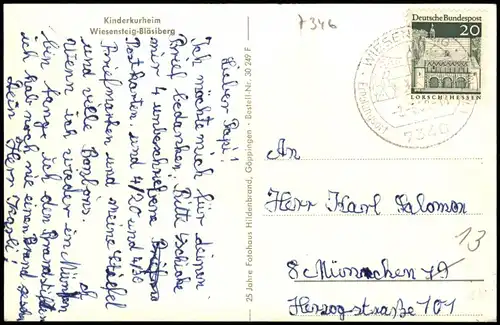 Kinderkurheim
Wiesensteig-Bläsiberg
7346
Lieber Papi!
Ich möchte mich für deinen
Brief bedanken. Bitte schicke
mir 4 unbeschriebene
Postkarten und 4/20 und 4/30
Briefmarken und meine Stiefel
und viele Bonbons.
Wenn ich wieder in München
bin fange ich den Brandstifter
ich hab noch nie einen Brand sehn
Dein Herr Kasoli!
25 Jahre Fotohaus Hildenbrand, Göppingen - Bestell-Nr. 30 249 F
Deutsche Bundespost
20
LORSCH/HESSEN
WIESENSTEIG
7346
An
Herr Karl Salomon
13
8 München 19
Herzogstraße 101